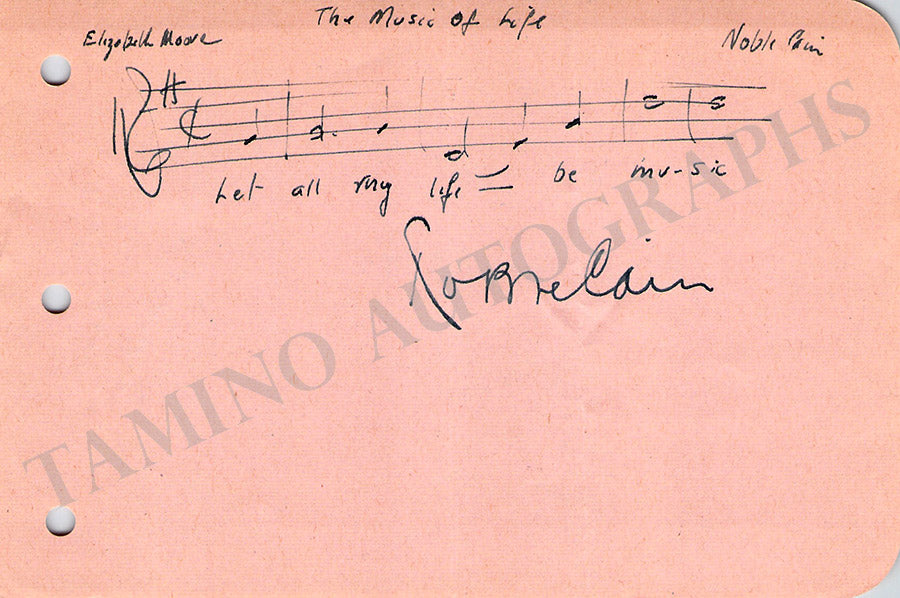 The Music of Life
Elizabeth Moore
Noble Cain
Let all my life be mu-sic
Noble Cain
TAMINO AUTOGRAPHS